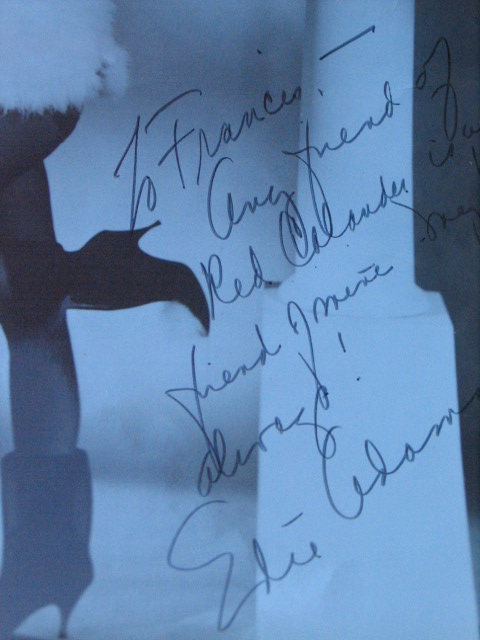 To Francis, —
Any friend of
Red Calander is
friend of mine my
always!
Edie Adams